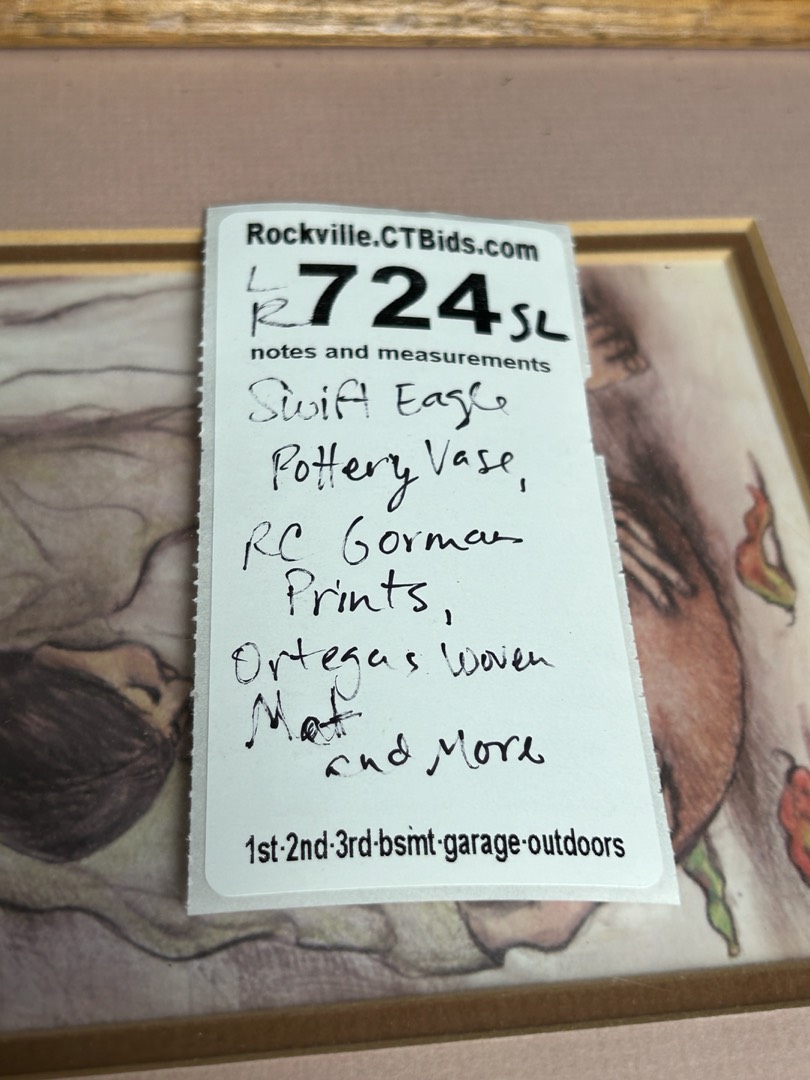 Rockville.CTBids.com
L
R 724 SL
notes and measurements
Swift Eagle
Pottery Vase,
RC Gorman
Prints,
Ortegas Woven
Mat
and More
1st·2nd·3rd·bsmt·garage·outdoors